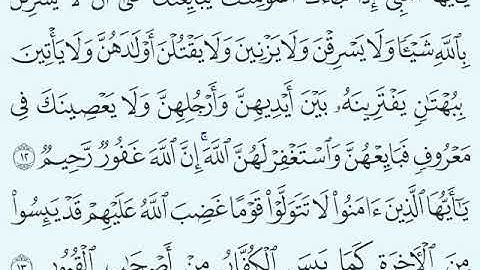 يَـٰٓأَيُّهَا ٱلنَّبِىُّ إِذَا جَآءَكَ ٱلْمُؤْمِنَـٰتُ يُبَايِعْنَكَ عَلَىٰٓ أَن لَّا يُشْرِكْنَ
بِٱللَّهِ شَيْـًٔا وَلَا يَسْرِقْنَ وَلَا يَزْنِينَ وَلَا يَقْتُلْنَ أَوْلَـٰدَهُنَّ وَلَا يَأْتِينَ
بِبُهْتَـٰنٍ يَفْتَرِينَهُۥ بَيْنَ أَيْدِيهِنَّ وَأَرْجُلِهِنَّ وَلَا يَعْصِينَكَ فِى
مَعْرُوفٍ فَبَايِعْهُنَّ وَٱسْتَغْفِرْ لَهُنَّ ٱللَّهَ ۖ إِنَّ ٱللَّهَ غَفُورٌ رَّحِيمٌ ١٢
يَـٰٓأَيُّهَا ٱلَّذِينَ ءَامَنُوا۟ لَا تَتَوَلَّوْا۟ قَوْمًا غَضِبَ ٱللَّهُ عَلَيْهِمْ قَدْ يَئِسُوا۟
مِنَ ٱلْـَٔاخِرَةِ كَمَا يَئِسَ ٱلْكُفَّارُ مِنْ أَصْحَـٰبِ ٱلْقُبُورِ ١٣